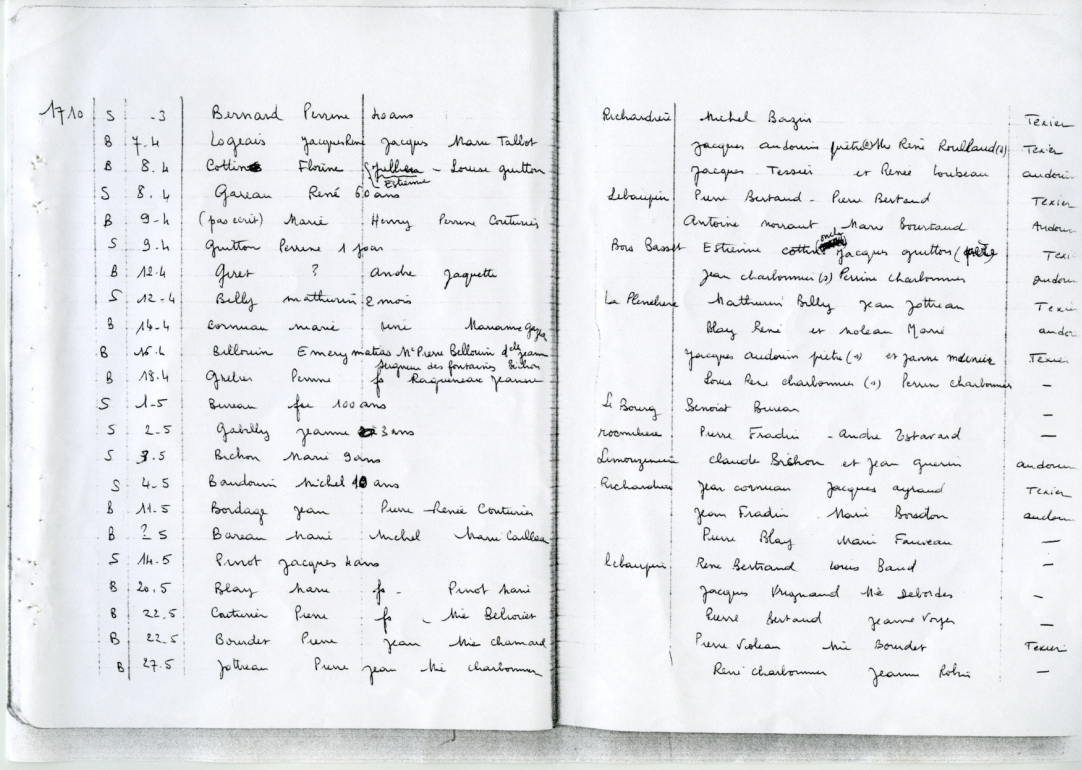 1710 S -3 Bernard Perrine 40 ans Richardrie Michel Bazin Texier
B 7.4 Logeais Jacques René Jacques Marie Tallot Jacques audouin prêtre René Roullaud (s) Texier
B 8.4 Cottin Florine Estienne - Louise guitton Jacques Tessier et Renée Loubeau audouin
S 8.4 Gareau René 60 ans Lebaupin Pierre Bertaud - Pierre Bertaud Texier
B 9-4 (pas ecrit) Marie Henry Perrine Couturier Antoine Marie Bourtaud Audouin
S 9.4 Guitton Perrine 1 jour Bois Basset Estienne oncle Jacques guitton Texier
B 12.4 Giret ? Andre Jaquette Jean charbonnier (s) Perrine charbonnier audouin
S 12-4 Billy mathurin 2 mois La Mathurin Billy Jean Jottreau Texier
B 14-4 Cornuau marie rené Marianne Blay René et Moleau Marie audouin
B 16.4 Bellouin Emery matias Mr Pierre Bellouin Jeanne Jacques audouin prêtre (s) et Janne Texier
Seigneur des fontaines Bichon
B 18.4 Perrine fs Jeanne Louis René charbonnier (s) Perrine charbonnier —
S 1-5 Bureau fee 100 ans Le Bourg Benoist Bureau —
S 2.5 Gabilly Jeanne 3 ans Pierre Fradin - Andre —
S 3.5 Bichon Marie 9 ans Claude Bichon et Jean guerin audouin
S 4-5 Baudouin Michel 10 ans Richardrie Jean cornuau Jacques ayraud Texier
B 11.5 Bordage Jean Pierre - Renée Couturier Jean Fradin Marie audouin
B ? 5 Bareau Marie Michel Marie Cailleau Pierre Blay Marie Fauveau —
S 14.5 Pinot Jacques 4 ans Lebaupin René Bertrand Louis Baud —
B 20.5 Blay Marie fs - Pinot Marie Jacques Vrignaud Mie Debordes —
B 22.5 Couturier Pierre fs - Mie Pierre Bertaud Jeanne Voyer —
B 22.5 Bourdet Pierre Jean Mie chamard Pierre Violeau Mie Bourdet Texier
B 27.5 Jottreau Pierre Jean Mie charbonnier René charbonnier Jeanne Robin —